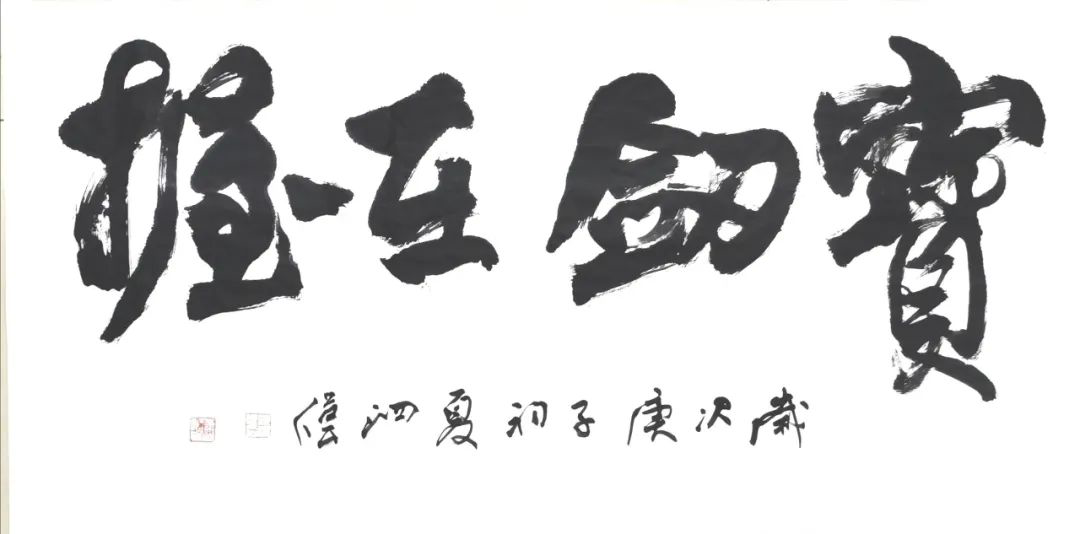 寶劍在握
歲次庚子初夏泗儒